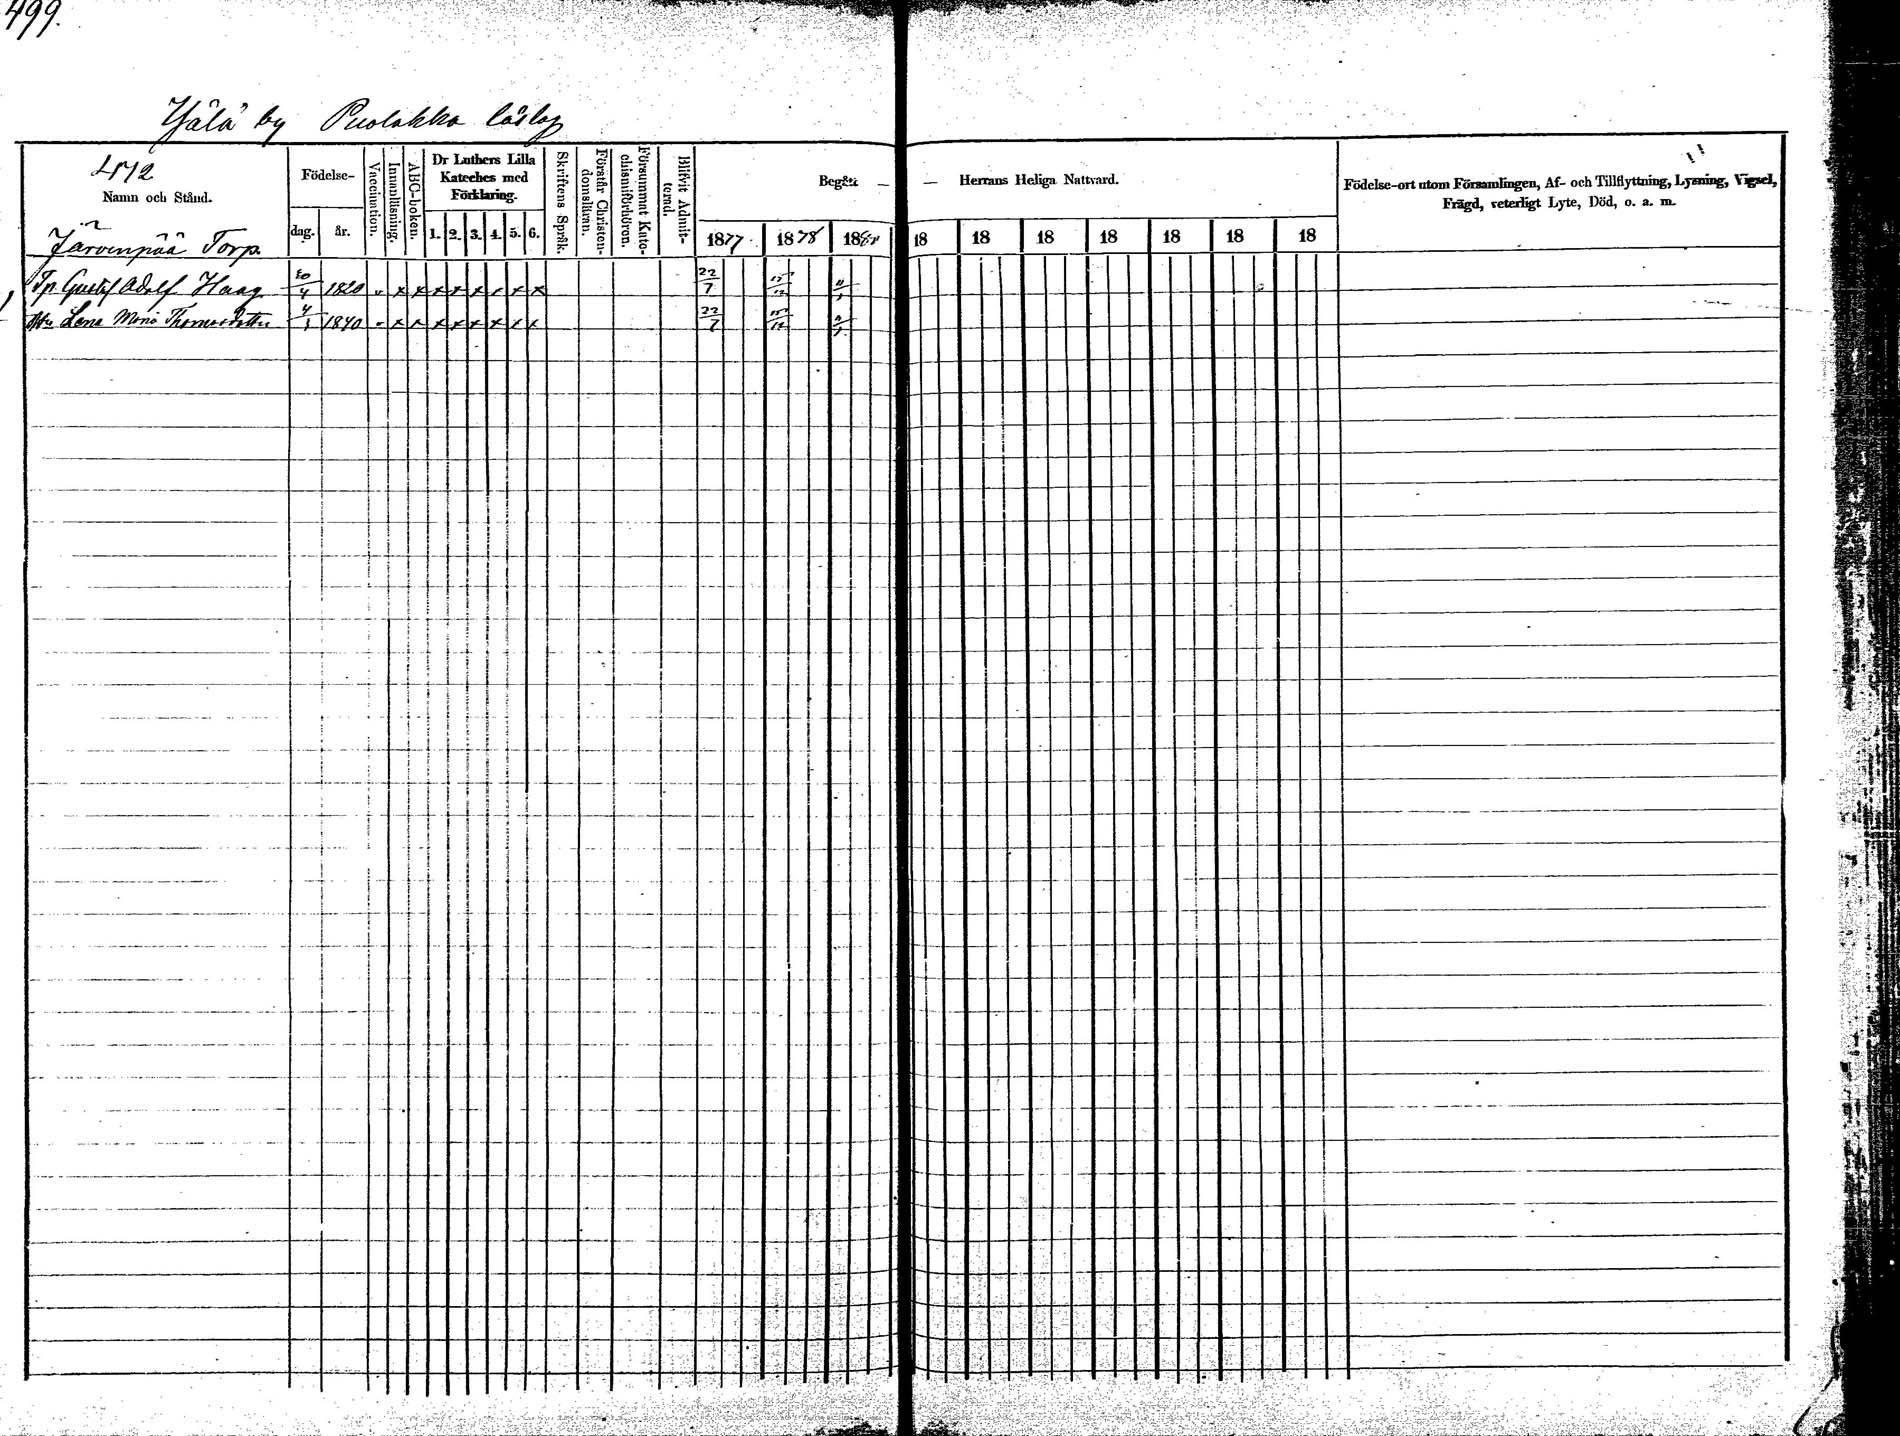 499.
by Puolakka läslag
Namn och Stånd.
Födelse-
dag.
år.
Vaccination.
Innanläsning.
ABC-boken.
Dr Luthers Lilla
Kateches med
Förklaring.
1. 2. 3. 4. 5. 6.
Skriftens Språk.
Förstår Christen-
domsläran.
Försummat Kate-
chismiförhören.
Blifvit Admit-
terad.
Begått — — Herrans Heliga Nattvard.
1877 1878 18 18 18 18 18 18 18 18
Födelse-ort utom Församlingen, Af- och Tillflyttning, Lysning, Vigsel,
Frägd, veterligt Lyte, Död, o. a. m.
Järvenpää Torp.
Tp. Gustaf Adolf Haag 1820 x x x x x x x x 22/7
Lena Maria Thomasdotter 4/1 1840 x x x x x x x x 22/7